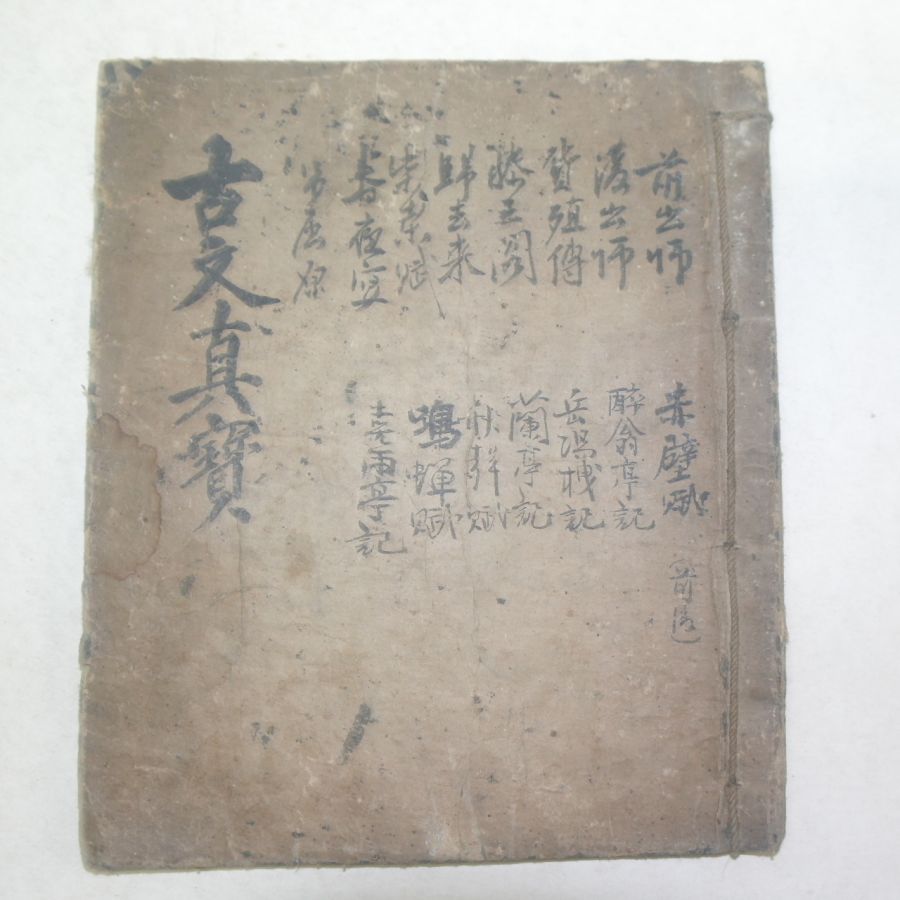 前出師
後出師
貨殖傳
滕王閣
歸去来
賦
春夜宴
弔屈原
赤壁賦（前後）
醉翁亭記
岳陽楼記
蘭亭記
秋聲賦
鳴蟬賦
喜雨亭記
古文真寶